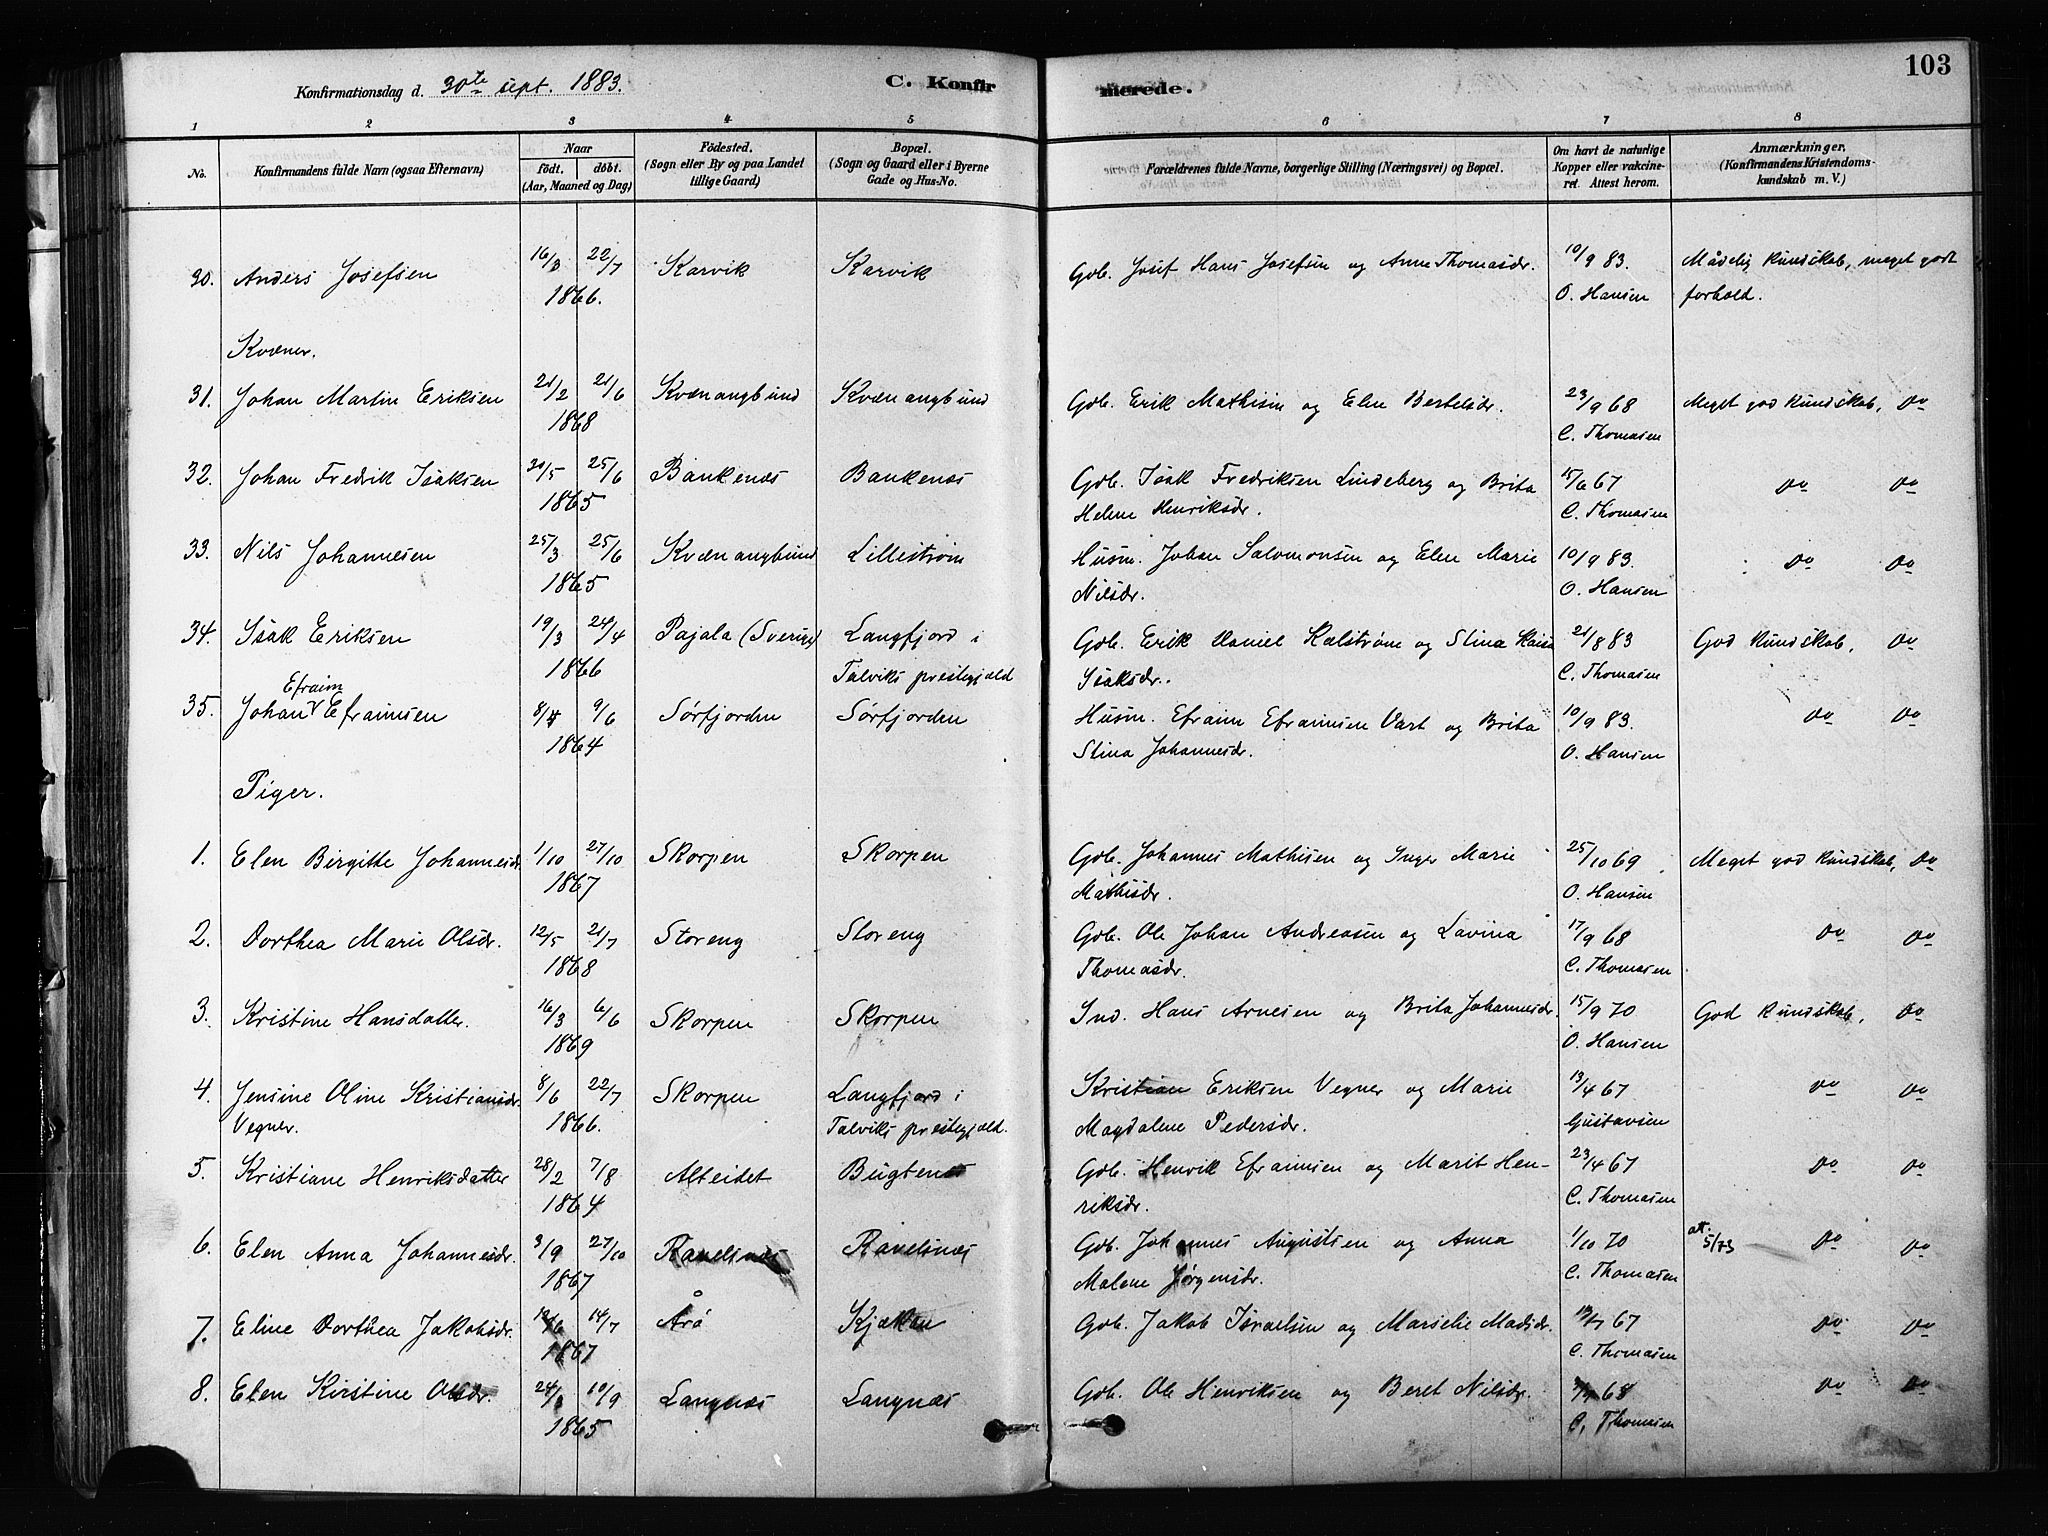 103
Konfirmationsdag d. 30te sept. 1883.
C. Konfirmerede.
1 2 3 4 5 6 7 8
No. Konfirmandens fulde Navn (ogsaa Efternavn) Naar födt. döbt. (Aar, Maaned og Dag) Födested. (Sogn eller By og paa Landet tillige Gaard) Bopæl. (Sogn og Gaard eller i Byerne Gade og Hus-No. Forældrenes fulde Navne, borgerlige Stilling (Næringsvei) og Bopæl. Om havt de naturlige Kopper eller vakcineret. Attest herom. Anmærkninger. (Konfirmandens Kristendomskundskab m. V.)
30. Anders Josefsen 16/3 22/7 Karvik Karvik Gdb. Josef Hans Josefsen og Anne Thomasdr. 10/9 83. Mådelig kundskab, meget godt
1866. O. Hansen forhold.
Kvæner.
31. Johan Martin Eriksen 21/2 21/6 Kvænangbund Kvænangbund Gdb. Erik Mathisen og Elen Bertelsdr. 23/9 68 Meget god kundskab, Do
1868 C. Thomasen
32. Johan Fredrik Isaksen 30/5 25/6 Bankenæs Bankenæs Gdb. Isak Fredriksen Lindeberg og Brita 15/6 67 Do Do
1865 Helene Henriksdr. C. Thomasen
33. Nils Johannesen 25/3 25/6 Kvænangbund Lillestrøm Husm. Johan Salomonsen og Elen Marie 10/9 83. Do Do
1865 Nilsdr. O. Hansen
34. Isak Eriksen 19/3 24/4 Pajala (Sverige) Langfjord i Gdb. Erik Daniel Kalstrøm og Stina Kaisa 21/8 83 God kundskab, Do
1866 Talviks prestegjæld Isaksdr. C. Thomasen
Efraim
35. Johan Efraimsen 8/4 9/6 Sørfjorden Sørfjorden Husm. Efraim Efraimsen Vart og Brita 10/9 83. Do Do
1864 Stina Johannesdr. O. Hansen
Piger.
1. Elen Birgitte Johannesdr. 1/10 27/10 Skorpen Skorpen Gdb. Johannes Mathisen og Inger Marie 25/10 69 Meget god kundskab, Do
1867 Mathisdr. O. Hansen
2. Dorthea Marie Olsdr. 12/5 21/7 Storeng Storeng Gdb. Ole Johan Andreasen og Lavina 17/9 68 Do Do
1868 Thomasdr. C. Thomasen
3. Kristine Hansdatter. 16/3 6/6 Skorpen Skorpen Ind. Hans Arnesen og Brita Johannesdr. 15/9 70 God kundskab, Do
1869 O. Hansen
4. Jensine Oline Kristiansdr. 8/6 22/7 Skorpen Langfjord i Kristian Eriksen Vegner og Marie 13/4 67 Do Do
Vegner. 1866. Talviks prestegjæld. Magdalene Pedersdr. Gustavsen
5. Kristiane Henriksdatter 28/2 7/8 Alteidet Bugtenæs Gdb. Henrik Efraimsen og Marit Hen- 23/4 67 Do Do
1864 riksdr. C. Thomasen
6. Elen Anna Johannesdr. 3/9 27/10 Ravelsnæs Ravelsnæs Gdb. Johannes Augustsen og Anna 1/10 70 at. 5/73 Do Do
1867 Malene Jørgensdr. C. Thomasen
7. Eline Dorthea Jakobsdr. 14/7 Årø Kjækan Gdb. Jakob Israelsen og Marselie Madsdr. 67 Do Do
1867 C. Thomasen
8. Elen Kirstine Olsdr. 10/9 Langnæs Langnæs Gdb. Ole Henriksen og Beret Nilsdr. 68 Do Do
1865 C. Thomasen